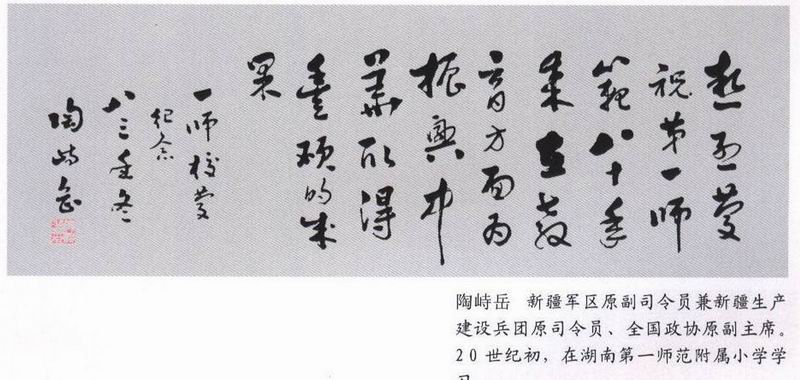 热烈慶
祝第一师
範八十年
来在教
育方面为
振興中
華所得
丰硕的成
果
一师校慶
纪念
八三年冬
陶峙岳
陶峙岳 新疆军区原副司令员兼新疆生产
建设兵团原司令员、全国政协原副主席。
20世纪初，在湖南第一师范附属小学学